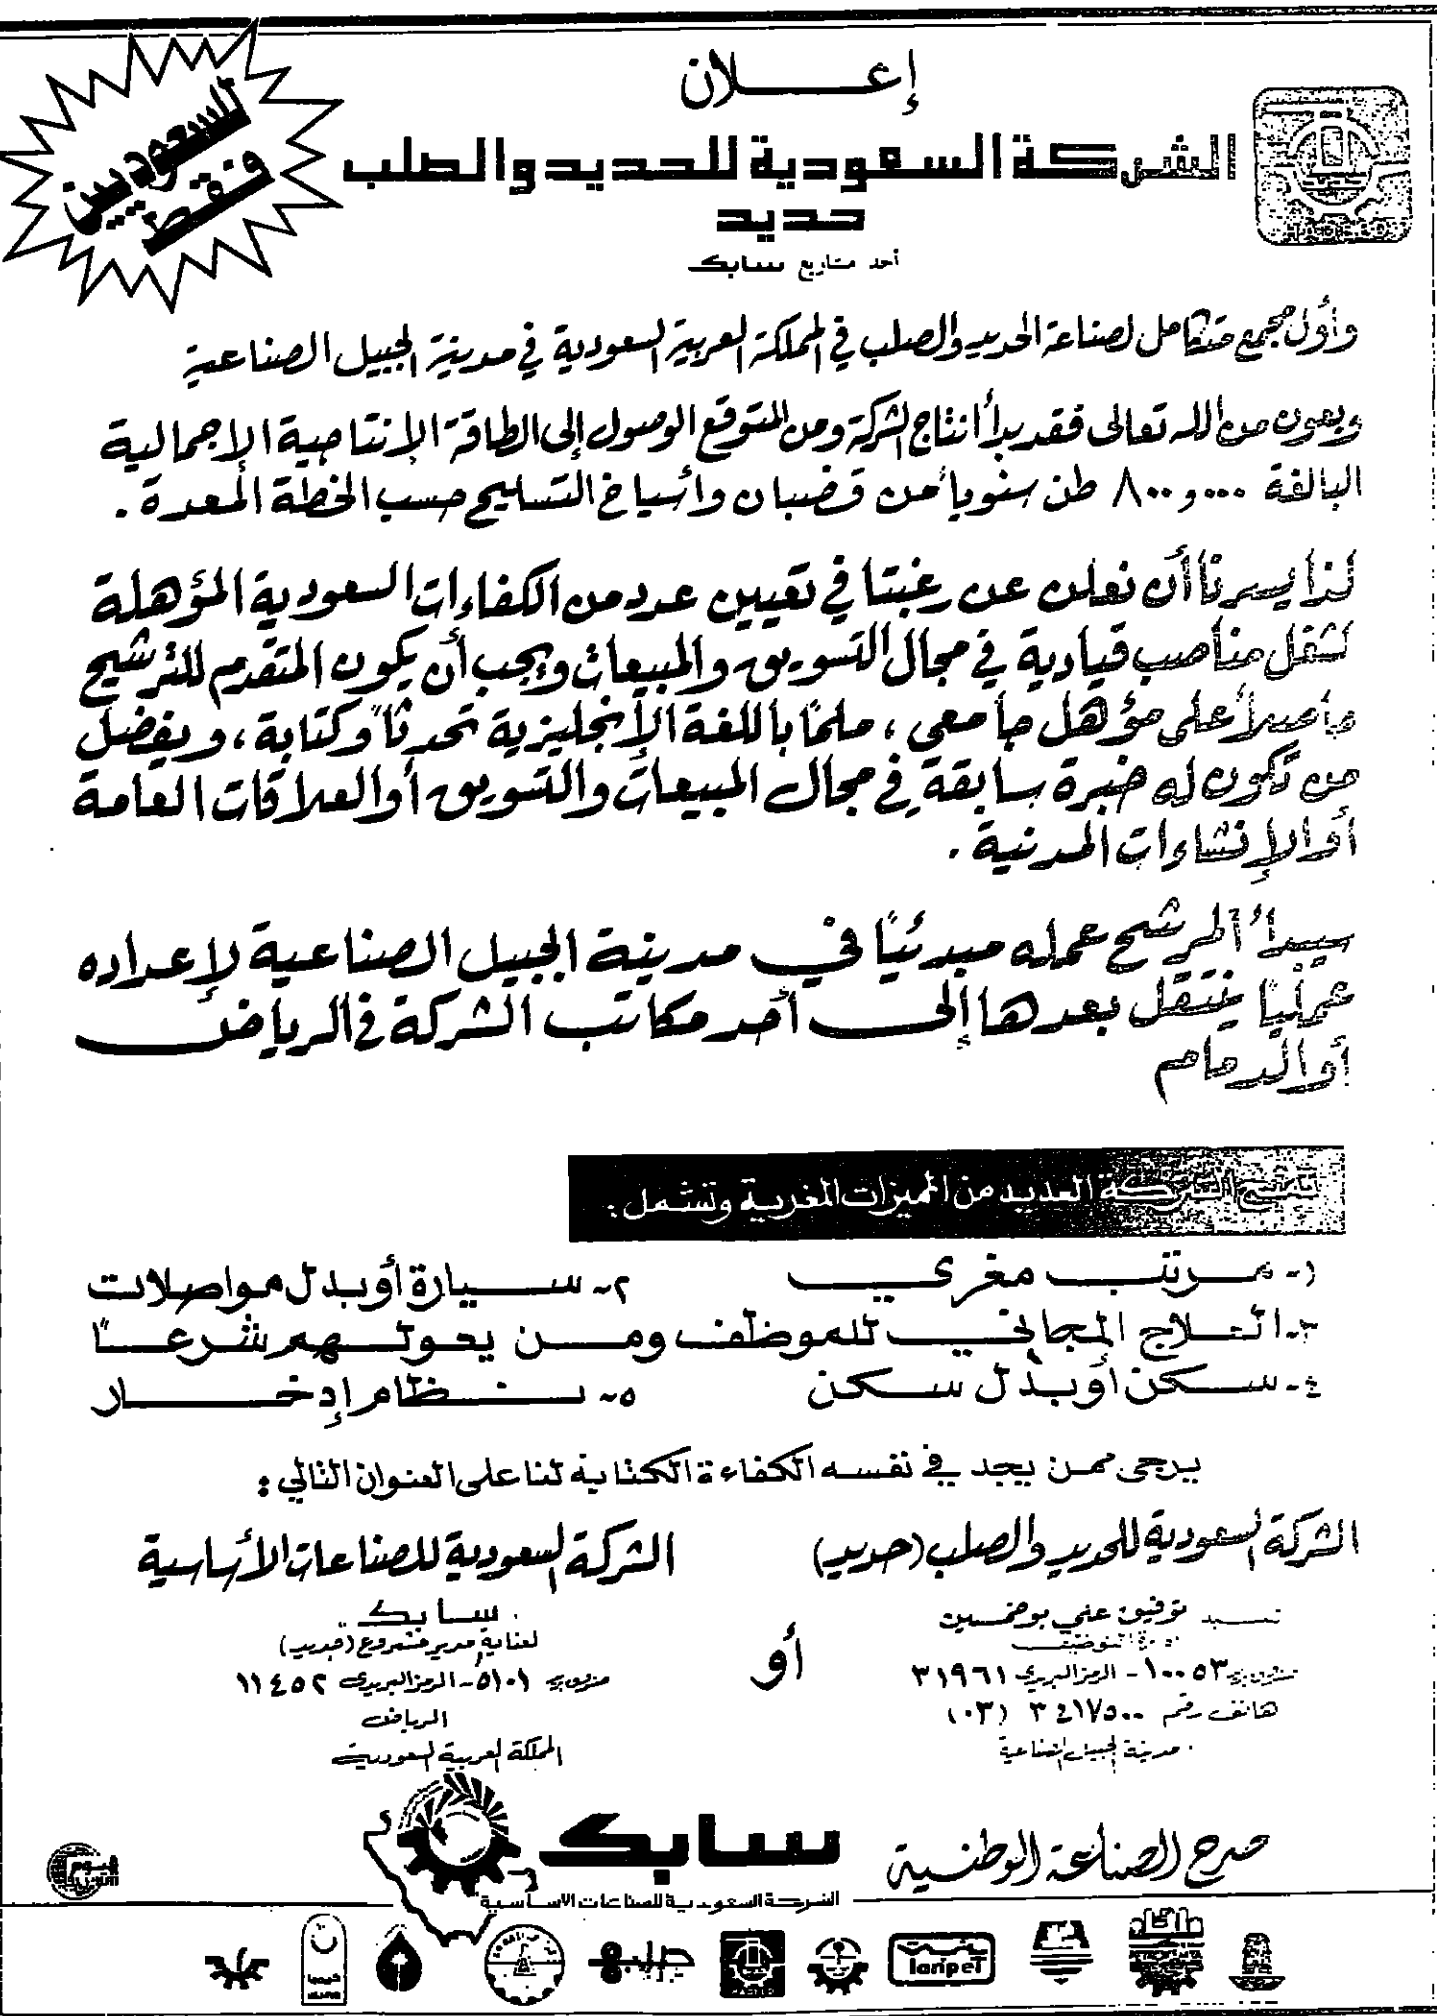 إعلان
للسعوديين
فقط
الشركة السعودية للحديد والصلب
حديد
أحد مشاريع سابك
HADEED
وأول مجمع متكامل لصناعة الحديد والصلب في المملكة العربية السعودية في مدينة الجبيل الصناعية
وبعون من الله تعالى فقد بدأ انتاج الشركة ومن المتوقع الوصول إلى الطاقة الإنتاجية الإجمالية
البالغة ٨٠٠و٠٠٠ طن سنوياً من قضبان وأسياخ التسليح حسب الخطة المعدة .
لذا يسرنا أن نعلن عن رغبتنا في تعيين عدد من الكفاءات السعودية المؤهلة
لشغل مناصب قيادية في مجال التسويق والمبيعات ويجب أن يكون المتقدم للترشيح
حاصلاً على مؤهل جامعي ، ملماً باللغة الإنجليزية تحدثاً وكتابة ، ويفضل
من تكون له خبرة سابقة في مجال المبيعات والتسويق أو العلاقات العامة
أو الإنشاءات المدنية .
سيبدأ المرشح عمله مبدئياً في مدينة الجبيل الصناعية لإعداده
عملياً ينتقل بعدها إلى أحد مكاتب الشركة في الرياض
أو الدمام
تمنح الشركة العديد من المميزات المغرية وتشمل :
١- مرتب مغري ٢- سيارة أو بدل مواصلات
٣- العلاج المجاني للموظف ومن يعولهم شرعاً
٤- سكن أو بدل سكن ٥- نظام إدخار
يرجى ممن يجد في نفسه الكفاءة الكتابة لنا على العنوان التالي :
الشركة السعودية للحديد والصلب (حديد)
السيد توفيق علي بوخمسين
إدارة التوظيف
صندوق بريد ١٠٠٥٣ - الرمز البريدي ٣١٩٦١
هاتف رقم ٣٤١٧٥٠٠ (٠٣)
مدينة الجبيل الصناعية
أو
الشركة السعودية للصناعات الأساسية
سابك
لعناية مدير مشروع (حديد)
ص.وق بريد ٥١٠١ - الرمز البريدي ١١٤٥٢
الرياض
المملكة العربية السعودية
صرح الصناعة الوطنية
سابك
الشركة السعودية للصناعات الاساسية
اليوم
ibnpet